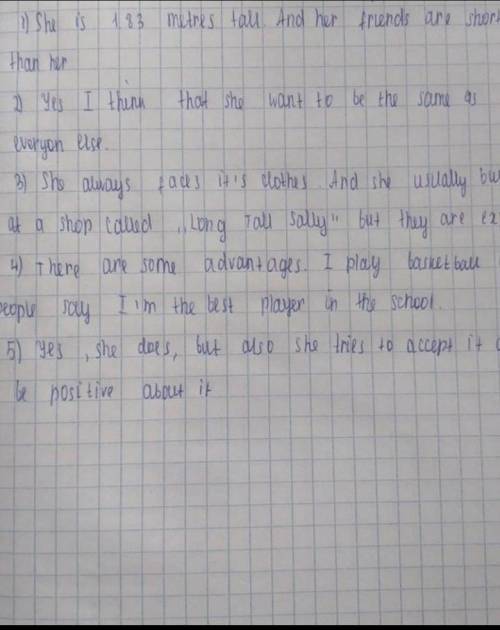 1) She is 1.83 metres tall. And her friends are short
than her
2) Yes I think that she want to be the same as
everyon else.
3) She always faces it's clothes. And she usually bu
at a shop called ,,Long Tall Sally" but they are ex
4) There are some advantages. I play basketball
people say I'm the best player in the school.
5) Yes, she does, but also she tries to accept it
be positive about it